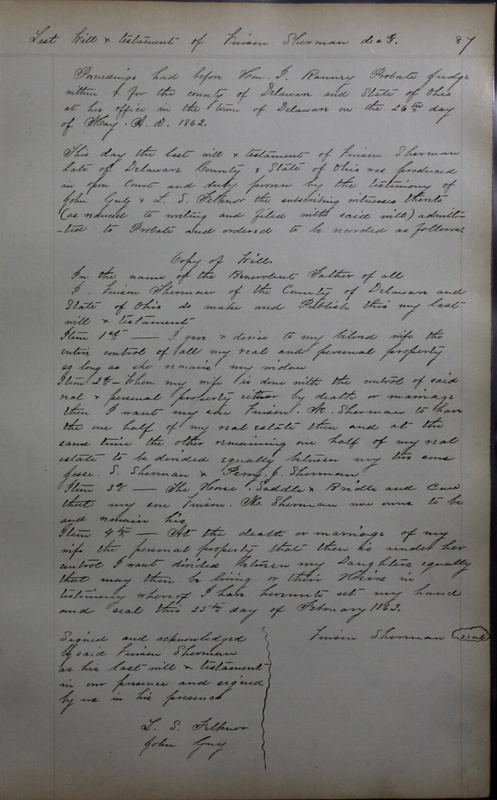 Last Will & testament of Vinson Sherman dec'd. 87
Proceedings had before Hon. T. Ranney Probate judge
within & for the county of Delaware and State of Ohio
at his office in the town of Delaware on the 26th day
of May. A. D. 1862.
This day the last will & testament of Vinson Sherman
late of Delaware County & State of Ohio was produced
in open Court and duly proven by the testimony of
John Guy & L. S. Felknor the subscribing witnesses thereto
(as reduced to writing and filed with said will) admit-
-ted to Probate and ordered to be recorded as follows:
Copy of Will.
In the name of the Benevolent Father of all
I Vinson Sherman of the County of Delaware and
State of Ohio do make and Publish this my last
will & testament
Item 1st — I give & devise to my beloved wife the
entire control of all my real and personal property
as long as she remains my widow
Item 2d — When my wife is done with the control of said
real & personal property either by death or marriage
then I want my son Vinson. M. Sherman to have
the one half of my real estate then and at the
same time the other remaining one half of my real
estate to be divided equally between my two sons
Jesse. S. Sherman & Perry. J. Sherman
Item 3d — The Horse Saddle & Bridle and Cow
that my son Vinson. M. Sherman now owns to be
and remain his
Item 4th — At the death or marriage of my
wife the personal property that then is under her
control I want divided between my Daughters equally
that may then be living or their Heirs in
testimony whereof I have hereunto set my hand
and seal this 25th day of February 1862.
Vinson Sherman seal
Signed and acknowledged
by said Vinson Sherman
as his last will & testament
in our presence and signed
by us in his presence
L. S. Felknor
John Guy